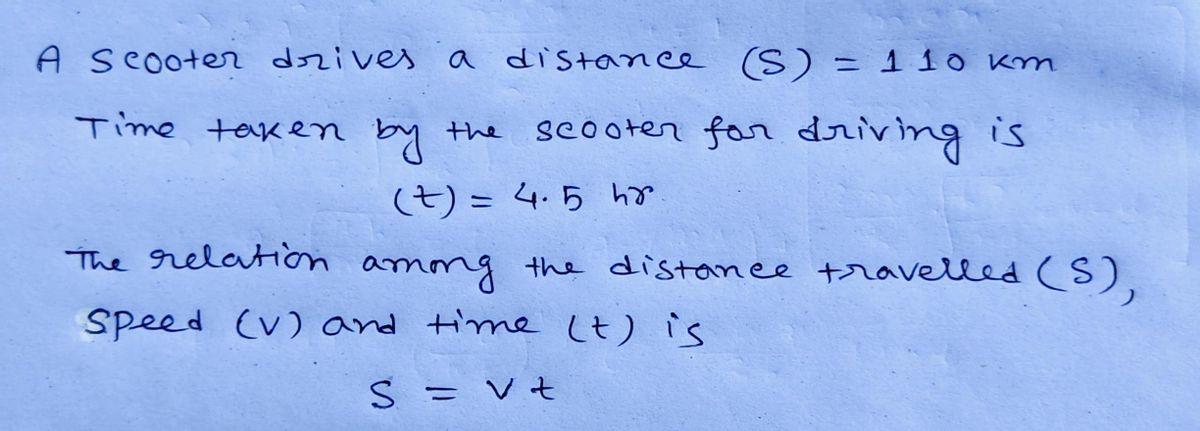 A scooter drives a distance (S) = 110 km
Time taken by the scooter for driving is
(t) = 4.5 hr.
The relation among the distance travelled (S),
Speed (v) and time (t) is
S = vt